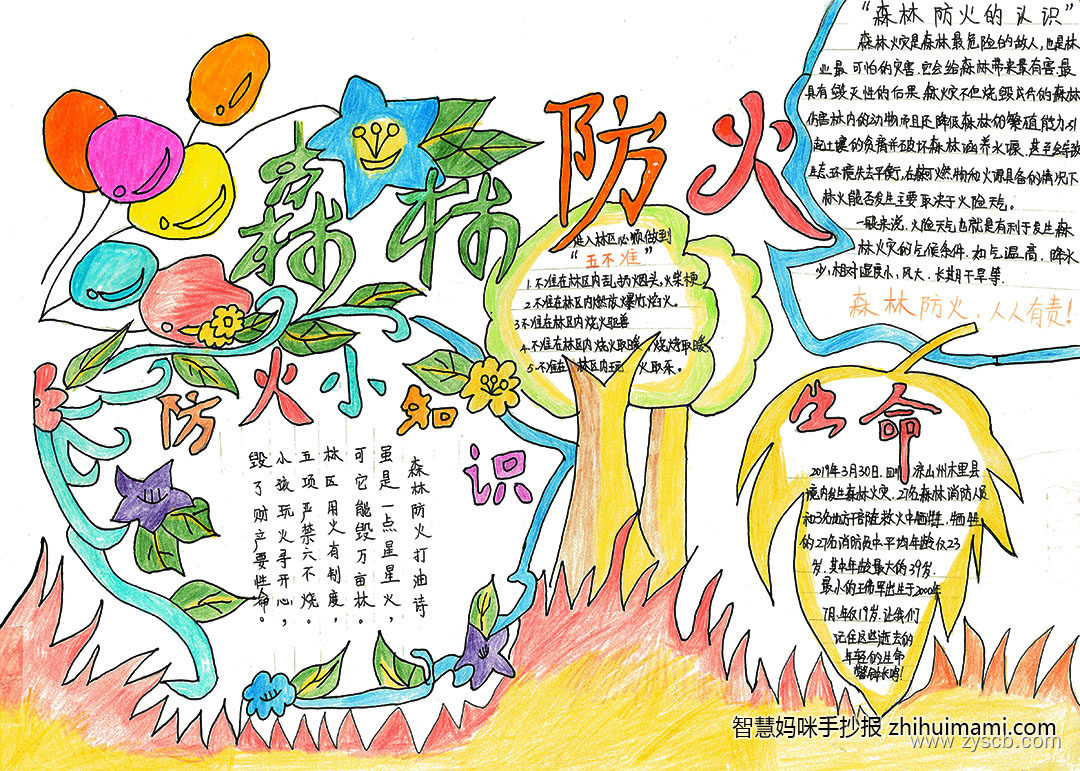 森林防火
“森林防火的认识”
森林火灾是森林最危险的敌人,也是林
业最可怕的灾害.它会给森林带来最有害.最
具有毁灭性的后果.森林火灾不但烧毁成片的森林
伤害林内的动物而且还降低森林的繁殖能力.引
起土壤的贫瘠并破坏森林涵养水源.甚至会导致
生态环境失去平衡.在森林可燃物和火源具备的情况下
林火能否发生主要取决于火险天气.
一般来说,火险天气也就是有利于发生森
林火灾的气候条件.如气温高.降水
少,相对湿度小,风大.长期干旱等.
森林防火,人人有责!
进入林区必须做到
“五不准”
1.不准在林区内乱扔烟头,火柴梗.
2.不准在林区内燃放爆竹焰火。
3不准在林区内烧火驱兽
4.不准在林区内烧火取暖 烧烤取暖
5.不准在林区内玩 火取乐。
防火小知识
森林防火打油诗
虽是一点星星火,
可它能毁万亩林。
林区用火有制度,
五项严禁六不烧。
小孩玩火寻开心,
毁了财产要性命。
生命
2019年3月30日.四川凉山州木里县
境内发生森林火灾,27名森林消防人员
和3名地方干部在救火中牺牲,牺牲
的27名消防员中平均年龄仅23
岁.其中年龄最大的39岁.
最小的王佛军出生于2000年
7月.年仅19岁.让我们
记住这些逝去的
年轻的生命
警钟长鸣!
智慧妈咪手抄报 zhihuimami.com
www.zyscb.com